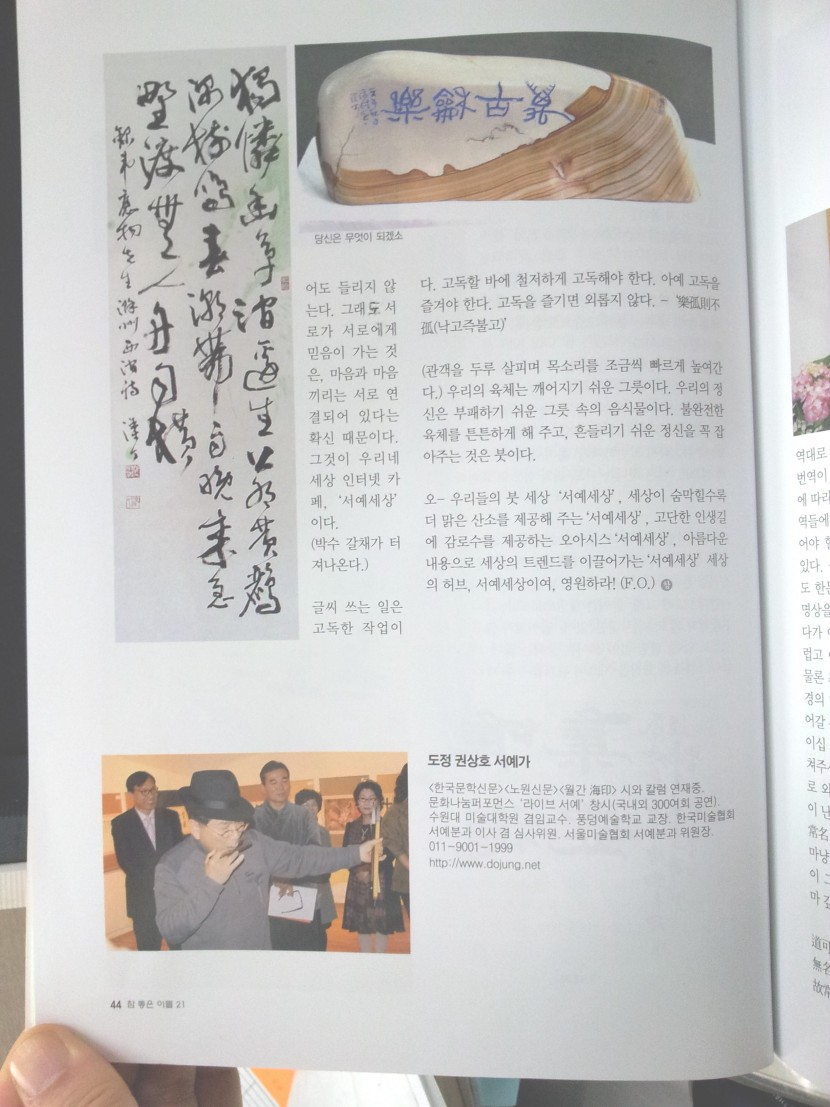 獨憐幽草澗邊生上有黃鸝
深樹鳴春潮帶雨晚來急
野渡無人舟自橫
應物先生滁州西澗詩
古龢樂
당신은 무엇이 되겠소
어도 들리지 않
는다. 그래도 서
로가 서로에게
믿음이 가는 것
은, 마음과 마음
끼리는 서로 연
결되어 있다는
확신 때문이다.
그것이 우리네
세상 인터넷 카
페, ‘서예세상’
이다.
(박수 갈채가 터
져나온다.)
글씨 쓰는 일은
고독한 작업이
다. 고독할 바에 철저하게 고독해야 한다. 아예 고독을
즐겨야 한다. 고독을 즐기면 외롭지 않다. - ‘樂孤則不
孤(낙고즉불고)’
(관객을 두루 살피며 목소리를 조금씩 빠르게 높여간
다.) 우리의 육체는 깨어지기 쉬운 그릇이다. 우리의 정
신은 부패하기 쉬운 그릇 속의 음식물이다. 불완전한
육체를 튼튼하게 해 주고, 흔들리기 쉬운 정신을 꼭 잡
아주는 것은 붓이다.
오- 우리들의 붓 세상 ‘서예세상’, 세상이 숨막힐수록
더 맑은 산소를 제공해 주는 ‘서예세상’, 고단한 인생길
에 감로수를 제공하는 오아시스 ‘서예세상’, 아름다운
내용으로 세상의 트렌드를 이끌어가는 ‘서예세상’ 세상
의 허브, 서예세상이여, 영원하라! (F.O.)
도정 권상호 서예가
<한국문학신문><노원신문><월간 海印> 시와 칼럼 연재중.
문화나눔퍼포먼스 ‘라이브 서예’ 창시(국내외 300여회 공연).
수원대 미술대학원 겸임교수. 풍덕예술학교 교장. 한국미술협회
서예분과 이사 겸 심사위원. 서울미술협회 서예분과 위원장.
011-9001-1999
http://www.dojung.net
44 참 좋은 이들 21
역대로
번역이
에 따리
역들에
어야 한
있다.
도 한문
명상을
다가
럽고
물론
경의
어갈
이십
쳐주시
로 외
이 난
常名
마냥
이 그
마 깊
道可
無名
故常